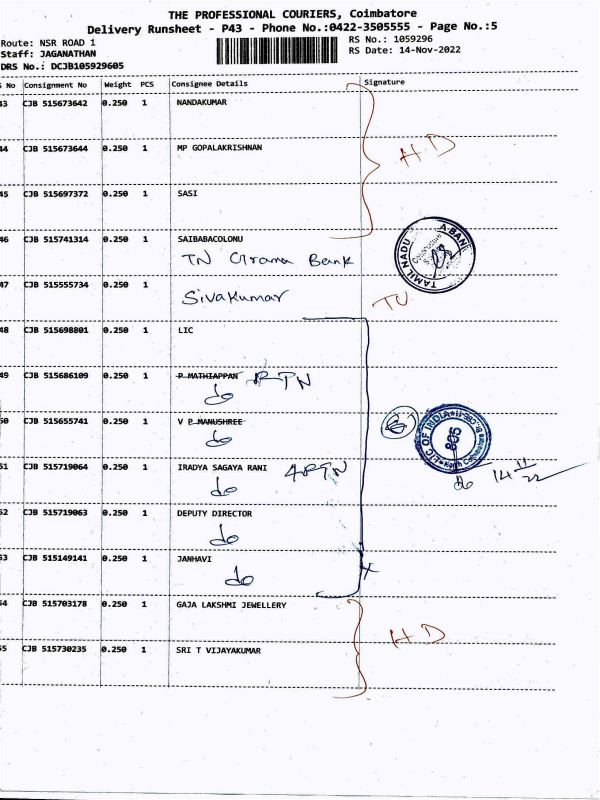 THE PROFESSIONAL COURIERS, Coimbatore
Delivery Runsheet - P43 - Phone No.:0422-3505555 - Page No.:5
Route: NSR ROAD 1
RS No.: 1059296
Staff: JAGANATHAN
RS Date: 14-Nov-2022
DRS No.: DCJB105929605
No Consignment No Weight PCS Consignee Details Signature
43 CJB 515673642 0.250 1 NANDAKUMAR
44 CJB 515673644 0.250 1 MP GOPALAKRISHNAN
HD
45 CJB 515697372 0.250 1 SASI
46 CJB 515741314 0.250 1 SAIBABACOLONU
TN Grama Bank
TAMILNADU
47 CJB 515555734 0.250 1 Sivakumar
48 CJB 515698801 0.250 1 LIC
49 CJB 515686109 0.250 1 P MATHIAPPAN RTN
do
50 CJB 515655741 0.250 1 V P MANUSHREE
do
6
LIC OF INDIA
805
51 CJB 515719064 0.250 1 IRADYA SAGAYA RANI
do
14 11 22
52 CJB 515719063 0.250 1 DEPUTY DIRECTOR
do
53 CJB 515149141 0.250 1 JANHAVI
do
54 CJB 515703178 0.250 1 GAJA LAKSHMI JEWELLERY
HD
55 CJB 515730235 0.250 1 SRI T VIJAYAKUMAR